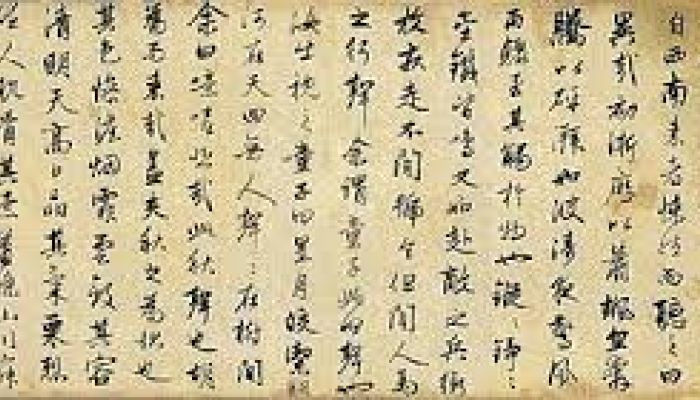 自西南來者悚然而聽之曰
異哉初淅瀝以蕭颯忽奔
騰以砰湃如波濤夜驚風
雨驟至其觸於物也鏦〻錚〻
金鐵皆鳴又如赴敵之兵銜
枚疾走不聞號令但聞人馬
之行聲余謂童子此何聲也
汝出視之童子曰星月皎潔明
河在天四無人聲〻在樹間
余曰噫嘻悲哉此秋聲也胡
為而來哉蓋夫秋之為狀也
其色慘淡煙霏雲斂其容
清明天高日晶其氣栗烈
人肌骨其意蕭條山川寂